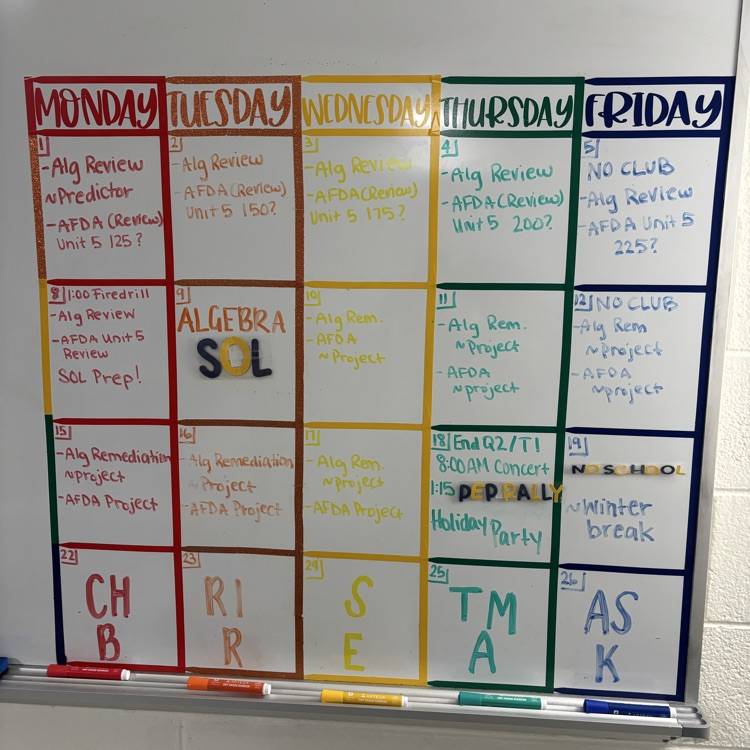 MONDAY TUESDAY WEDNESDAY THURSDAY FRIDAY
1
-Alg Review
~Predictor
-AFDA (Review)
Unit 5 125?
2
-Alg Review
-AFDA (Review)
Unit 5 150?
3
-Alg Review
-AFDA (Review)
Unit 5 175?
4
-Alg Review
-AFDA (Review)
Unit 5 200?
5
NO CLUB
-Alg Review
-AFDA Unit 5
225?
8 1:00 Firedrill
-Alg Review
-AFDA Unit 5
Review
SOL Prep!
9
ALGEBRA
SOL
10
-Alg Rem.
-AFDA
~Project
11
-Alg Rem.
~Project
-AFDA
~project
12 NO CLUB
-Alg Rem
~project
-AFDA
~project
15
-Alg Remediation
~project
-AFDA Project
16
-Alg Remediation
~Project
-AFDA Project
17
-Alg Rem.
~project
-AFDA Project
18 End Q2/T1
8:00AM Concert
1:15 PEP RALLY
Holiday Party
19
NO SCHOOL
~Winter
break
22
CH
B
23
RI
R
24
S
E
25
TM
A
26
AS
K